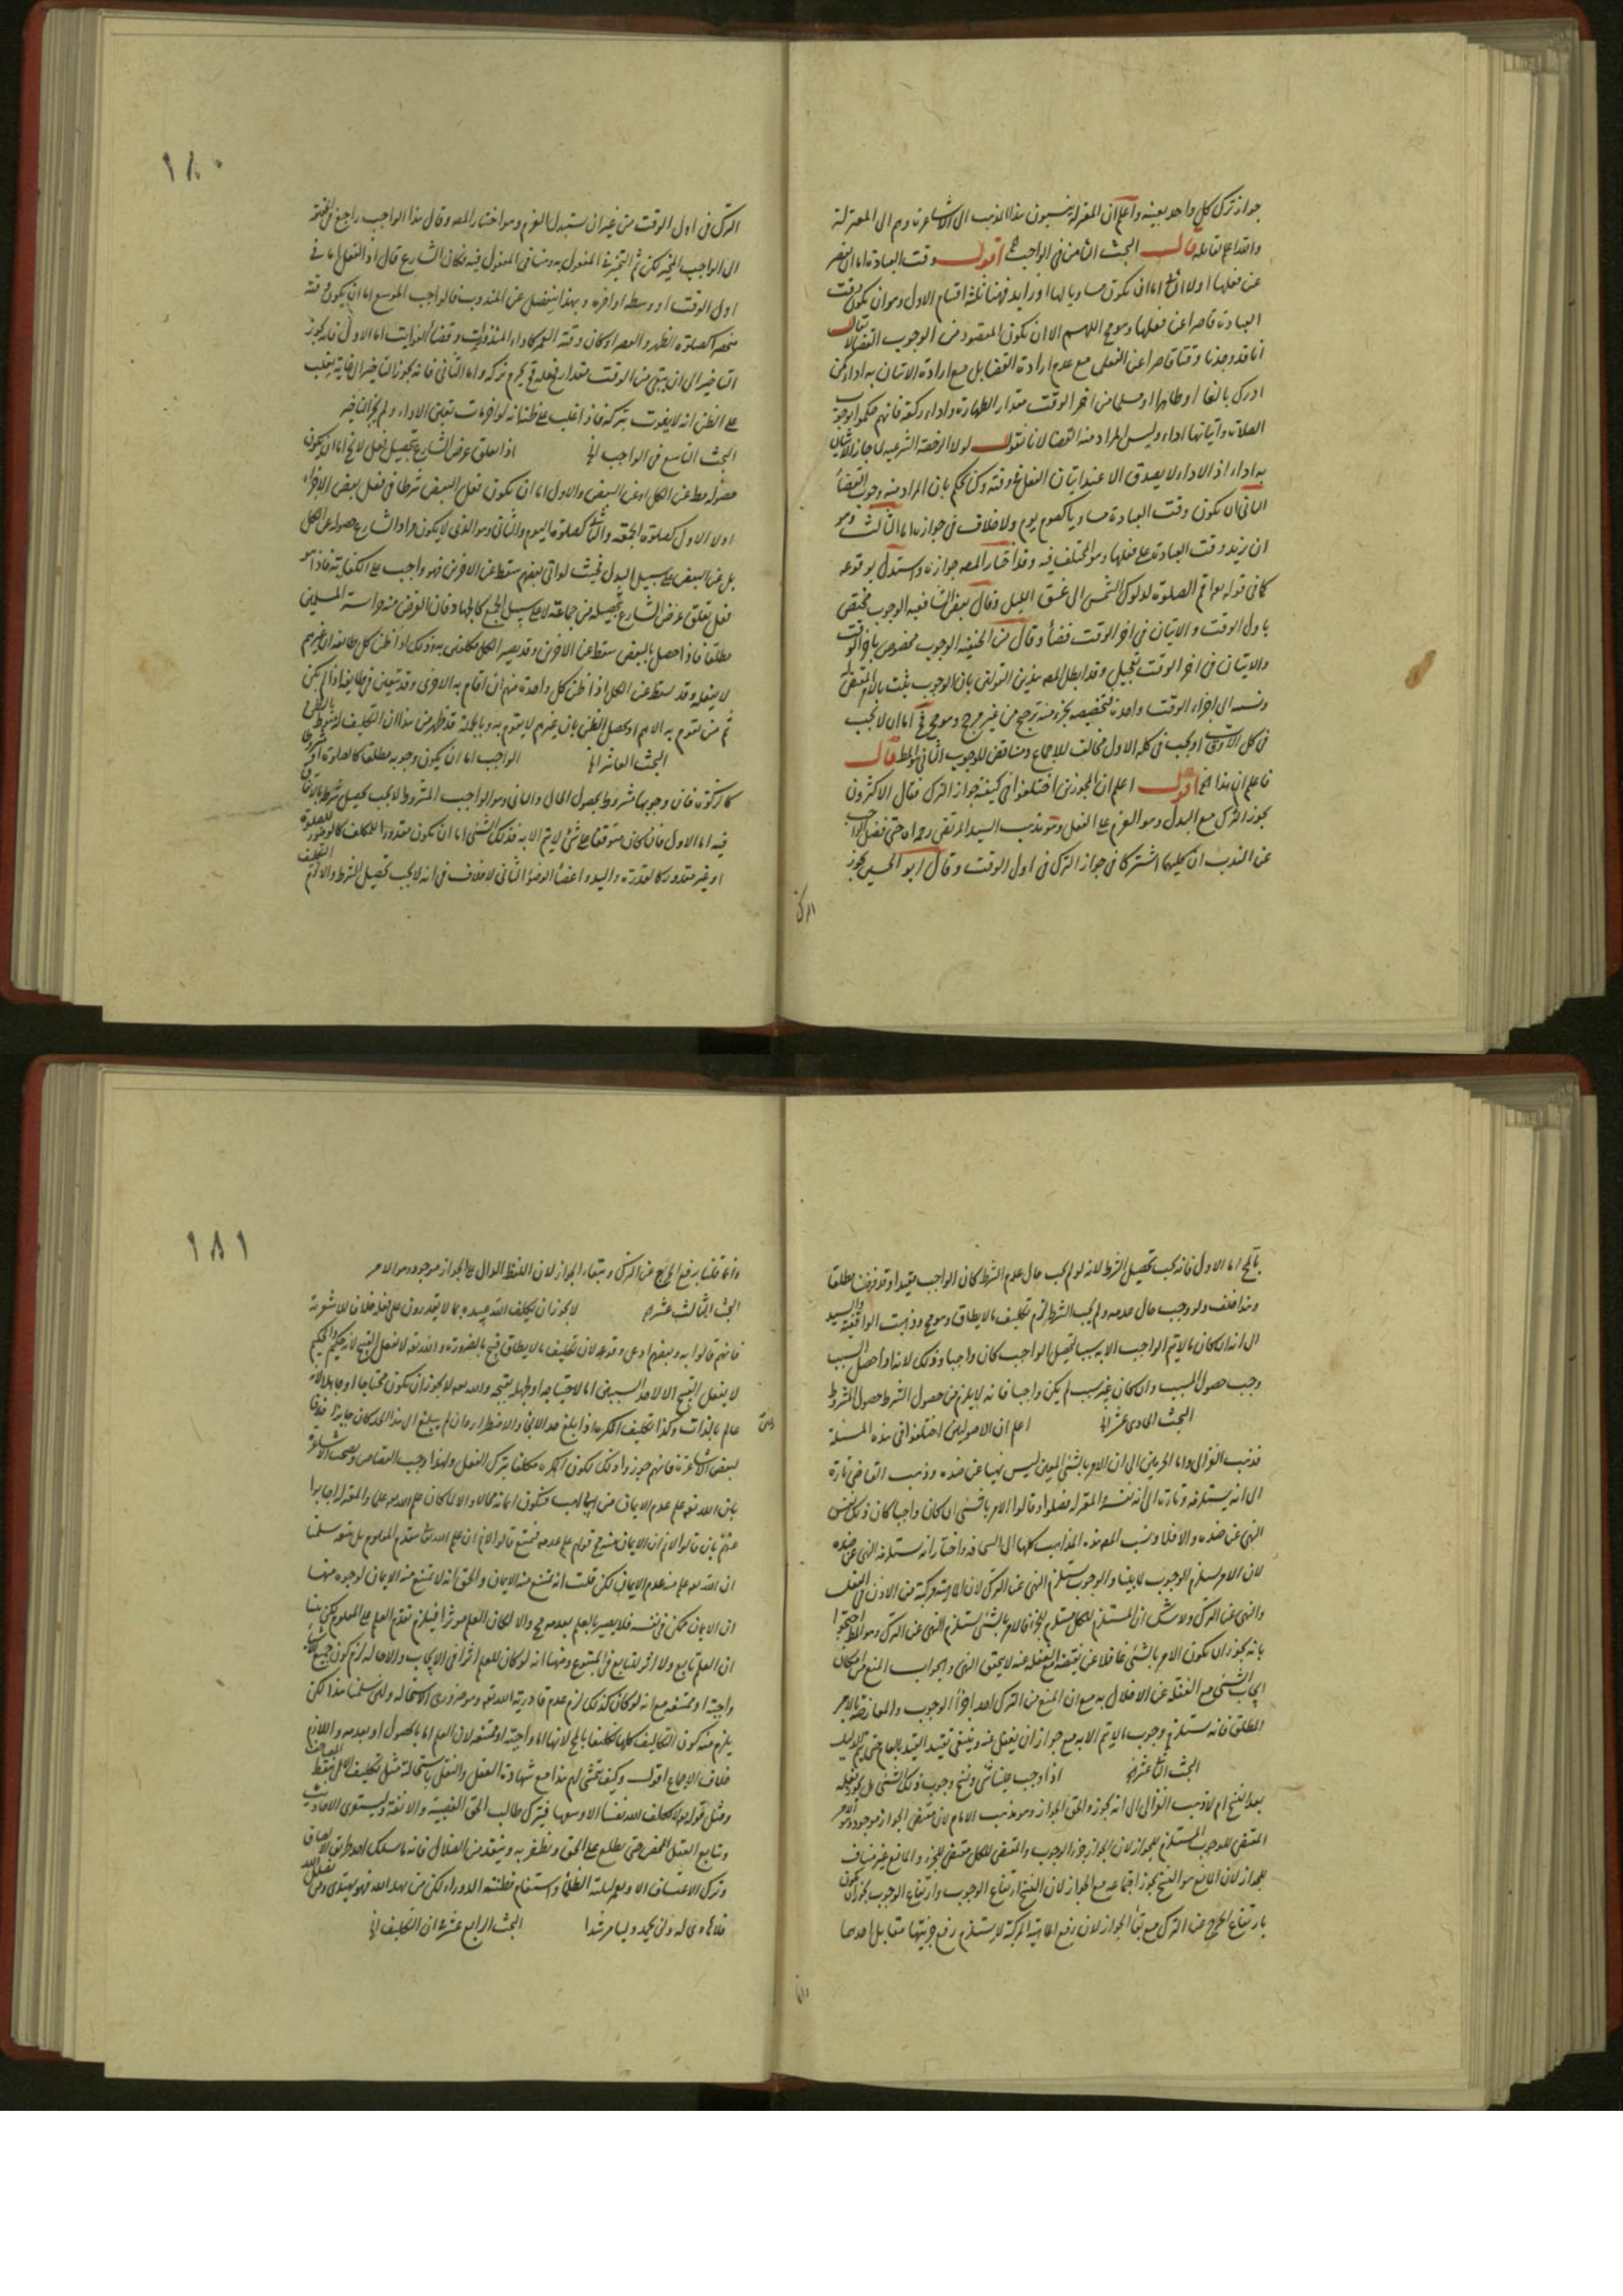 جواز ترك كل واحد بعينه واعلم ان المعتزلة ينسبون هذا المذهب الى الاشاعرة وهم الى المعتزلة
والله اعلم بقائله قال البحث الثامن في الواجب اقول وقت العبادة اما ان يقصر
عن فعلها اولا والثاني اما ان يكون مساويا لها او زايد فهنا ثلثة اقسام الاول وهو ان يكون وقت
العبادة قاصرا عن فعلها وهو مح اللهم الا ان يكون المقصود من الوجوب القضاء لا يقال
انا قد وجدنا وقتا قاصرا عن الفعل مع عدم ارادة القضا بل مع ارادة الاتيان به اداء كمن
ادرك بالغا او طاهرا او مسلما من اخر الوقت مقدار الطهارة واداء ركعة فانهم حكموا بوجوب
الصلاة واتيانها اداء وليس المراد منه القضا لانا نقول لولا الرخصة الشرعية لما جاز الاتيان
به اداء اذ الاداء لا يصدق الا عند اتيان الفعل في وقته وكنا نحكم بان المراد منه وجوب القضاء
الثاني ان يكون وقت العبادة مساويا كصوم يوم ولا خلاف في جوازه اما الثالث وهو
ان يزيد وقت العبادة على فعلها وهو المختلف فيه وقد اختار المصه جوازه واستدل بوقوعه
كما في قوله تعالى اقم الصلوة لدلوك الشمس الى غسق الليل وقال بعض الشافعية الوجوب مختص
باول الوقت والاتيان في اخر الوقت قضاء وقال من الحنفية الوجوب مخصوص باخر الوقت
والاتيان في اخر الوقت تعجيل وقد ابطل المصه هذين القولين بان الوجوب يثبت بالامر المقتضي
ونسبته الى اجزاء الوقت واحدة فتخصيصه بجزء منه ترجيح من غير مرجح وهو مح فح اما ان لا يجب
في كل الاوقات او يجب في كله الاول مخالف للاجماع ومناقض للوجوب الثاني هو المط قال
فاعلم ان هذا الخ اقول اعلم ان المجوزين اختلفوا في كيفية جواز الترك فقال الاكثرون
يجوز الترك مع البدل وهو العزم على الفعل وهو مذهب السيد المرتضى رحمه الله حتى فصل الواجب
عن الندب اذ كليهما اشتركا في جواز الترك في اول الوقت وقال ابو الحسين يجوز
الترك
١٨٠
الترك في اول الوقت من غير ان يستبدل العزم وهو اختيار المصه وقال هذا الواجب راجع في الحقيقة
الى الواجب المخير لكن ثم التخيير في المفعول به وهنا في المفعول فيه فكان الشارع قال اوقع الفعل اما في
اول الوقت او وسطه او اخره وبهذا ينفصل عن المندوب فالواجب الموسع اما ان يكون وقته
منحصرا كصلوة الظهر والعصر او كان وقته العمر كاداء المنذورات وقضاء الفوايت اما الاول فانه يجوز
التاخير الى ان يبقى من الوقت مقدار فعله فح يحرم تركه واما الثاني فانه يجوز التاخير الى غاية يغلب
على الظن انه لا يفوت بتركه فاذا غلب على ظنه انه لو اخر مات تعين الاداء ولم يجز التاخير
البحث التاسع في الواجب الخ اذا تعلق غرض الشارع بتحصيل فعل لا يخ اما ان يكون
حصوله مط عن الكل او عن البعض والاول اما ان يكون فعل البعض شرطا في فعل بعض الاخر
او لا الاول كصلوة الجمعة والثاني كصلوة اليوم والثاني وهو الذي لا يكون مراد الشارع حصوله عن الكل
بل عن البعض على سبيل البدل بحيث لو اتى بعضهم سقط عن الاخرين فهو واجب على الكفاية فاذا هو
فعل تعلق غرض الشارع بتحصيله من جماعة لا على سبيل الجمع كالجهاد فان الغرض منه حراسة المسلمين
مطلقا فاذا حصل بالبعض سقط عن الاخرين وقد يصير الكل مكلفين به وذلك اذا ظن كل طايفة ان غيرهم
لا يفعله وقد يسقط عن الكل اذا ظن كل واحدة منهم ان اقام به الاخرى وقد يتعين في طايفة اذا لم يكن
ثم من يقوم به الا هم او يحصل الظن بان غيرهم لا يقوم به وبالجملة قد ظهر من هذا ان التكليف له منوط بالظن
البحث العاشر الخ الواجب اما ان يكون وجوبه مطلقا كالصلوة او مشروطا
كالزكوة فان وجوبها مشروط بحصول المال والثاني وهو الواجب المشروط لا يجب تحصيل شرطه بالاتفاق
فيه اما الاول فان كان متوقفا على شئ لا يتم الا به فذلك الشئ اما ان يكون مقدورا للمكلف كالوضوء للصلوة
او غير مقدور كالقدرة واليد واعضاء الوضوء الثاني لا خلاف في انه لا يجب تحصيل الشرط والا لزم التكليف
بالمح اما الاول فانه يجب تحصيل الشرط لانه لو لم يجب حال عدم الشرط كان الواجب مقيدا وقد فرضنا مطلقا
وهذا خلف ولو وجب حال عدمه ولم يجب الشرط لزم تكليف ما لا يطاق وهو مح وذهبت الواقفية والسيد
الى انه ان كان ما لا يتم الواجب الا به سببا لتحصيل الواجب كان واجبا وذلك لانه اذا حصل السبب
وجب حصول المسبب وان كان غير سبب لم يكن واجبا فانه لا يلزم من حصول الشرط حصول المشروط
البحث الحادي عشر الخ اعلم ان الاصوليين اختلفوا في هذه المسئلة
فذهب الغزالي واما الحرمين الى ان الامر بالشئ المعين ليس نهيا عن ضده وذهب القاضي تارة
الى انه يستلزمه وتارة الى انه نفسه المعتزلة فصلوا وقالوا الامر بالشئ ان كان واجبا كان ذلك نفس
النهي عن ضده والا فلا ونسب المصه هذه المذاهب كلها الى السخافة واختار انه يستلزم النهي عن ضده
لان الامر يستلزم الوجوب لما بينا والوجوب يستلزم النهي عن الترك لان ماهيته مركبة من الاذن في الفعل
والنهي عن الترك ولا شك ان المستلزم للكل مستلزم للجزء فالامر بالشئ يستلزم النهي عن الترك وهو المط احتجوا
بانه يجوز ان يكون الامر بالشئ غافلا عن نقيضه ومع الغفلة عنه لا يحقق النهي والجواب المنع من امكان
ايجاب الشئ مع الغفلة عن الاخلال به مع ان المنع من الترك احد اجزاء الوجوب والمعارضة بالامر
المطلق فانه يستلزم وجوب ما لا يتم الا به مع جواز ان يغفل عنه
البحث الثاني عشر الخ اذا وجب علينا شئ ونسخ وجوب ذلك الشئ هل يجوز فعله
بعد النسخ ام لا ذهب الغزالي الى انه يجوز والحق الجواز وهو مذهب الامام لان مقتضى الجواز موجود وهو الامر
المقتضي للوجوب المستلزم للجواز لان الجواز جزء الوجوب والمقتضي للكل مقتضي للجزء والمانع غير مناف
للجواز لان المانع هو النسخ يجوز اجتماعه مع الجواز لان النسخ ارتفاع الوجوب وارتفاع الوجوب يجوز ان يكون
بارتفاع الحرج عن الترك مع بقاء الجواز لان رفع الماهية المركبة لا يستلزم رفع جزئيها مقابل احدهما
وانما
١٨١
وانما قلنا برفع الحرج عن الترك وببقاء الجواز لان اللفظ الدال على الجواز موجود وهو الامر
البحث الثالث عشر الخ لا يجوز ان يكلف الله عبيده بما لا يقدرون على فعله خلافا للاشعرية
فانهم قالوا به وبعضهم ادعى وقوعه لان تكليف ما لا يطاق قبيح بالضرورة والله تعالى لا يفعل القبيح لانه حكيم والحكيم
لا يفعل القبيح الا لاحد السببين اما لاحتياجه او لجهله بقبحه والله تعالى لا يجوز ان يكون محتاجا او جاهلا لانه غنى
عالم بالذات وكذا تكليف المكره اذا بلغ حد الالجاء والاضطرار وان لم يبلغ الى هذا الحد كان جايزا خلافا
لبعض الاشاعرة فانهم جوزوا ذلك لكون المكره مكلفا بترك الفعل ولهذا وجب القصاص وبحث الاشاعرة
بان الله تعالى علم عدم الايمان من ابي لهب فيكون ايمانه محالا والا لكان علم الله تعالى جهلا والمعتزلة اجابوا
عنهم بان قالوا لا نم ان الايمان منه مح قولهم علم عدمه فيمتنع قلنا لا نم ان علم الله تعالى يستلزم المعلوم بل يتبعه سلمنا
ان الله تعالى علم منه عدم الايمان لكن قلت انه يمتنع منه الايمان والحق انه لا يمتنع منه الايمان لوجوه منها
ان الايمان ممكن في نفسه فلا يصير بالعلم بعدمه مح والا لكان العلم مؤثرا فيلزم تقدم العلم على المعلوم لكن بينا
ان العلم تابع ولا اثر للتابع في المتبوع ومنها انه لو كان للعلم اثرا في الايجاب والاحالة لزم كون جميع الاشياء
واجبة او ممتنعة مع انه لو كان كذلك لزم عدم قادرية الله تعالى وهو ضروري الاستحالة ولئن سلمنا هذا لكن
يلزم منه كون التكاليف كلها تكليفا بالمح لانها اما واجبة او ممتنعة لان العلم اما بالحصول او بعدمه واللازم
خلاف الاجماع اقول وكيف يتمشى لهم هذا مع شهادة العقل والنقل باستحالة مثل تكليف الاعمى نقط المصاحف
ومثل قوله تعالى لا يكلف الله نفسا الا وسعها فيترك طالب الحق العصبية والانفة
ويتابع العقل المحض حتى يطلع على الحق ويظفر به وينقذ من الضلال فانه ما سلك احد طريق الانصاف
وترك الاعتساف الا
فلا هادي له ولن تجد له وليا مرشدا البحث الرابع عشر في ان التكليف الخ